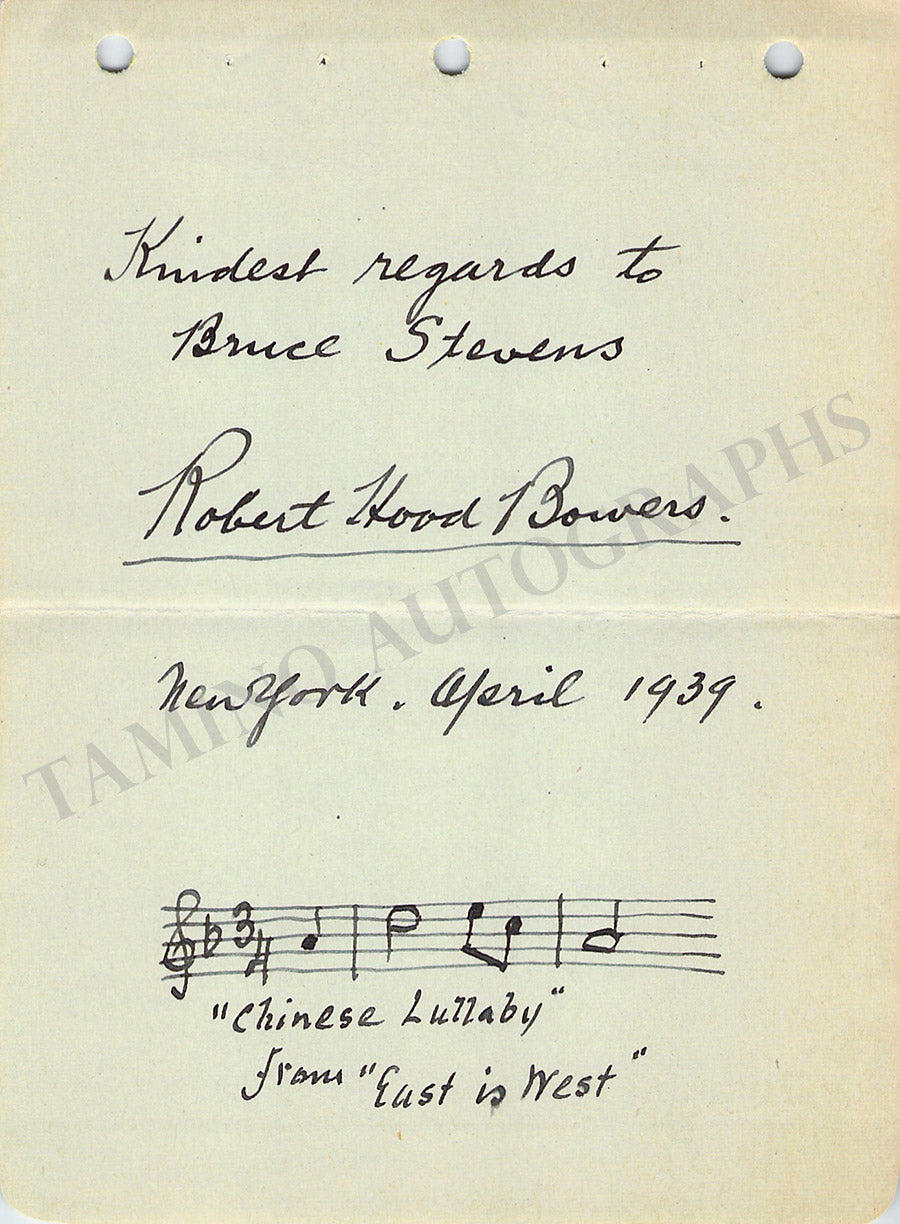 Kindest regards to
Bruce Stevens
Robert Hood Bowers.
New York. April 1939.
TAMINO AUTOGRAPHS
3
4
"Chinese Lullaby"
from "East is West"